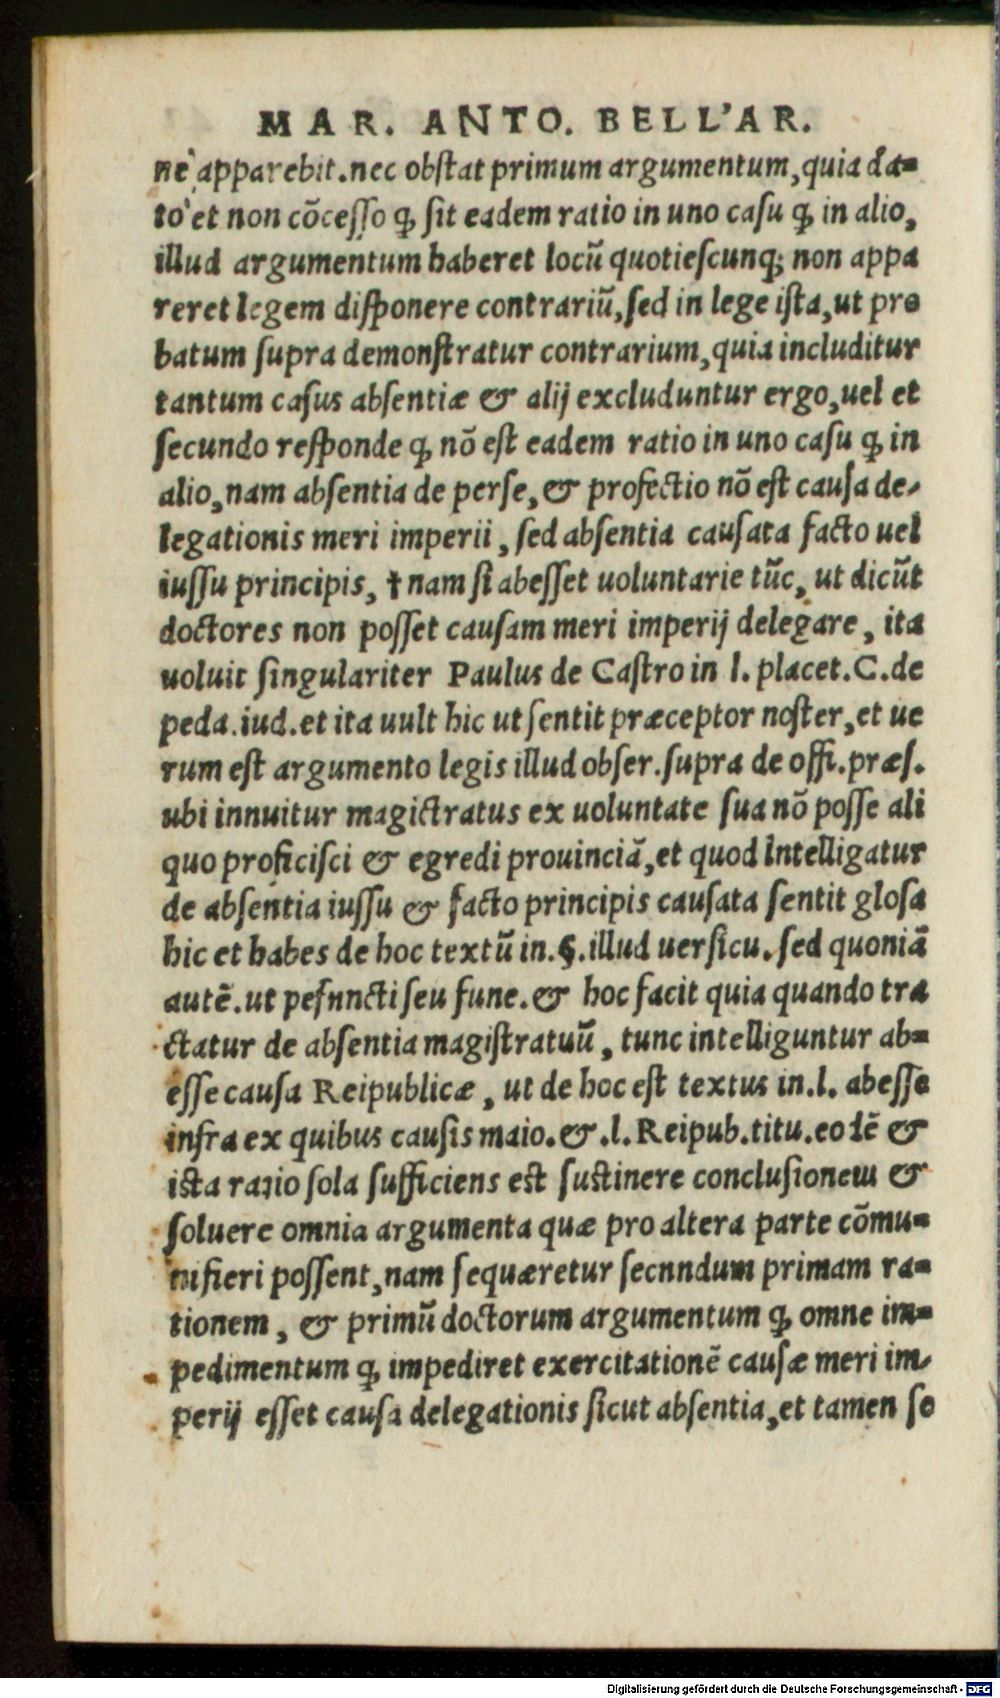 MAR. ANTO. BELL'AR.
nè apparebit.nec obstat primum argumentum,quia da=
to et non cōcesso ꝙ sit eadem ratio in uno casu ꝙ in alio,
illud argumentum haberet locū quotiescunq; non appa
reret legem disponere contrariū,sed in lege ista,ut pro
batum supra demonstratur contrarium,quia includitur
tantum casus absentiæ & alij excluduntur ergo,uel et
secundo responde ꝙ nō est eadem ratio in uno casu ꝙ in
alio,nam absentia de perse,& profectio nō est causa de-
legationis meri imperii, sed absentia causata facto uel
iussu principis, † nam si abesset uoluntarie tūc, ut dicūt
doctores non posset causam meri imperij delegare, ita
uoluit singulariter Paulus de Castro in l. placet.C.de
peda.iud.et ita uult hic ut sentit præceptor noster,et ue
rum est argumento legis illud obser.supra de offi.præs.
ubi innuitur magictratus ex uoluntate sua nō posse ali
quo proficisci & egredi prouinciā,et quod intelligatur
de absentia iussu & facto principis causata sentit glosa
hic et habes de hoc textū in.§.illud uersicu.sed quoniā
autē.ut pefnncti seu fune.& hoc facit quia quando tra
ctatur de absentia magistratuū, tunc intelliguntur ab=
esse causa Reipublicæ, ut de hoc est textus in.l. abesse
infra ex quibus causis maio.&.l.Reipub.titu.eo dē &
icta ratio sola sufficiens est suctinere conclusionem &
soluere omnia argumenta quæ pro altera parte cōmu=
nifieri possent,nam sequæretur secnndum primam ra=
tionem, & primū doctorum argumentum ꝙ omne im=
pedimentum ꝙ impediret exercitationē causæ meri im-
perij esset causa delegationis sicut absentia,et tamen se
Digitalisierung gefördert durch die Deutsche Forschungsgemeinschaft - DFG